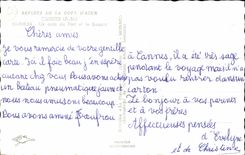 REFLETS DE LA COTE D'AZUR
CANNES (A.-M.)
Chères amies
Je vous remercie de votre gentille
carte. Ici il fait beau, j'en espère
autant chez vous. Nous avons acheté
un bateau pneumatique Jeannot et
nous nous amusons beaucoup
Nous avons amené
à Cannes, il a été très sage
pendant le voyage mais il n'a
pas voulu rentrer dans son
carton
Le bonjour à vos parents
et à vos frères
Affectueuses pensées
d'Evelyne
et de Christiane